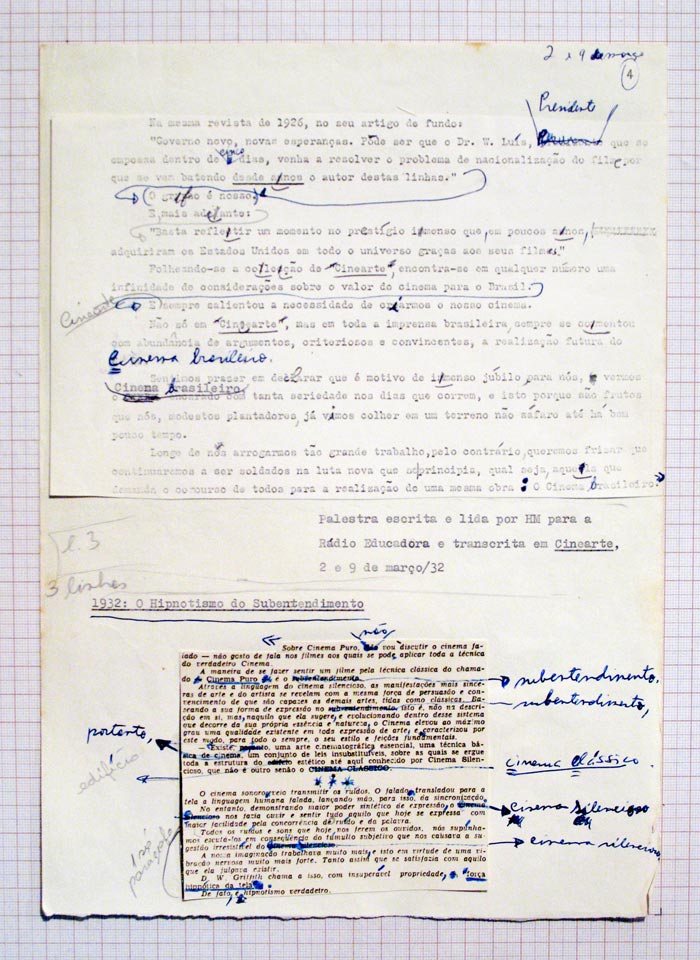 2 e 9 de março
4
Presidente
Na mesma revista de 1926, no seu artigo de fundo:
"Governo novo, novas esperanças. Pode ser que o Dr. W. Luis, que se
empossa dentro de cinco dias, venha a resolver o problema de nacionalização do film por
que se vem batendo desde annos o autor destas linhas."
(O grifo é nosso)
E, mais adiante:
"Basta reflectir um momento no prestigio immenso que, em poucos annos,
adquiriram os Estados Unidos em todo o universo graças aos seus films."
Folheando-se a collecção de "Cinearte", encontra-se em qualquer número uma
infinidade de considerações sobre o valor do cinema para o Brasil.
E sempre salientou a necessidade de criarmos o nosso cinema.
Cinearte
Não só em "Cinearte", mas em toda a imprensa brasileira, sempre se comentou
com abundância de argumentos, criteriosos e convincentes, a realização futura do
Cinema brasileiro.
Sentimos prazer em declarar que é motivo de immenso júbilo para nós, vermos
Cinema Brasileiro
encarado com tanta seriedade nos dias que correm, e isto porque são frutos
que nós, modestos plantadores, já vimos colher em um terreno não sáfaro até há bem
pouco tempo.
Longe de nós arrogarmos tão grande trabalho, pelo contrário, queremos frisar que
continuaremos a ser soldados na luta nova que se principia, qual seja, aquella que
demanda o concurso de todos para a realização de uma mesma obra: O Cinema brasileiro.
Palestra escrita e lida por HM para a
Rádio Educadora e transcrita em Cinearte,
2 e 9 de março/32
l. 3
3 linhas
1932: O Hipnotismo do Subentendimento
não
Sobre Cinema Puro. vou discutir o cinema fa-
lado — não gosto de fala nos filmes aos quais se pode aplicar toda a técnica
do verdadeiro Cinema.
A maneira de se fazer sentir um filme pela técnica clássica do chama-
do Cinema Puro é o
subentendimento.
Através a linguagem do cinema silencioso, as manifestações mais since-
ras de arte e do artista se revelam com a mesma força de persuasão e con-
vencimento de que são capazes as demais artes, tidas como classicas. Ba-
seando a sua forma de expressão no subentendimento, isto é, não na descri-
subentendimento,
ção em si, mas naquilo que ela supere, e evolucionando dentro desse sistema
que decorre da sua própria essência e natureza, o Cinema elevou ao máximo
grau uma qualidade existente em toda expressão de arte, e caracterizou por
este modo, para todo o sempre, o seu estilo e feições fundamentais.
portanto,
— Existe, portanto, uma arte cinematográfica essencial, uma técnica bá-
sica de cinema, um conjunto de leis insubstituíveis, sobre as quais se ergue
toda a estrutura do edifício estético até aqui conhecido por Cinema Silen-
edifício
cioso, que não é outro senão o CINEMA CLÁSSICO
cinema clássico.
* * *
O cinema sonoro veio transmitir os ruídos. O falado, transladou para a
tela a linguagem humana falada, lançando mão, para isso, da sincronização.
No entanto, demonstrando maior poder sintético de expressão, o Cinema
cinema silencioso
Silencioso nos fazia ouvir e sentir tudo aquilo que hoje se expressa com
maior facilidade pela concorrência do ruído e da palavra.
Todos os ruídos e sons que hoje nos ferem os ouvidos, nós supunha-
mos escutá-los em conseqüência do tumulto subjetivo que nos causava a su-
gestão irresistível do Cinema Silencioso.
cinema silencioso.
A nossa imaginação trabalhava muito mais, e isto em virtude de uma vi-
bração nervosa muito mais forte. Tanto assim que se satisfazia com aquilo
que ela julgava existir.
D. W. Griffith chama a isso, com insuperável propriedade, a força
hipnótica da tela.
De fato, é hipnotismo verdadeiro.